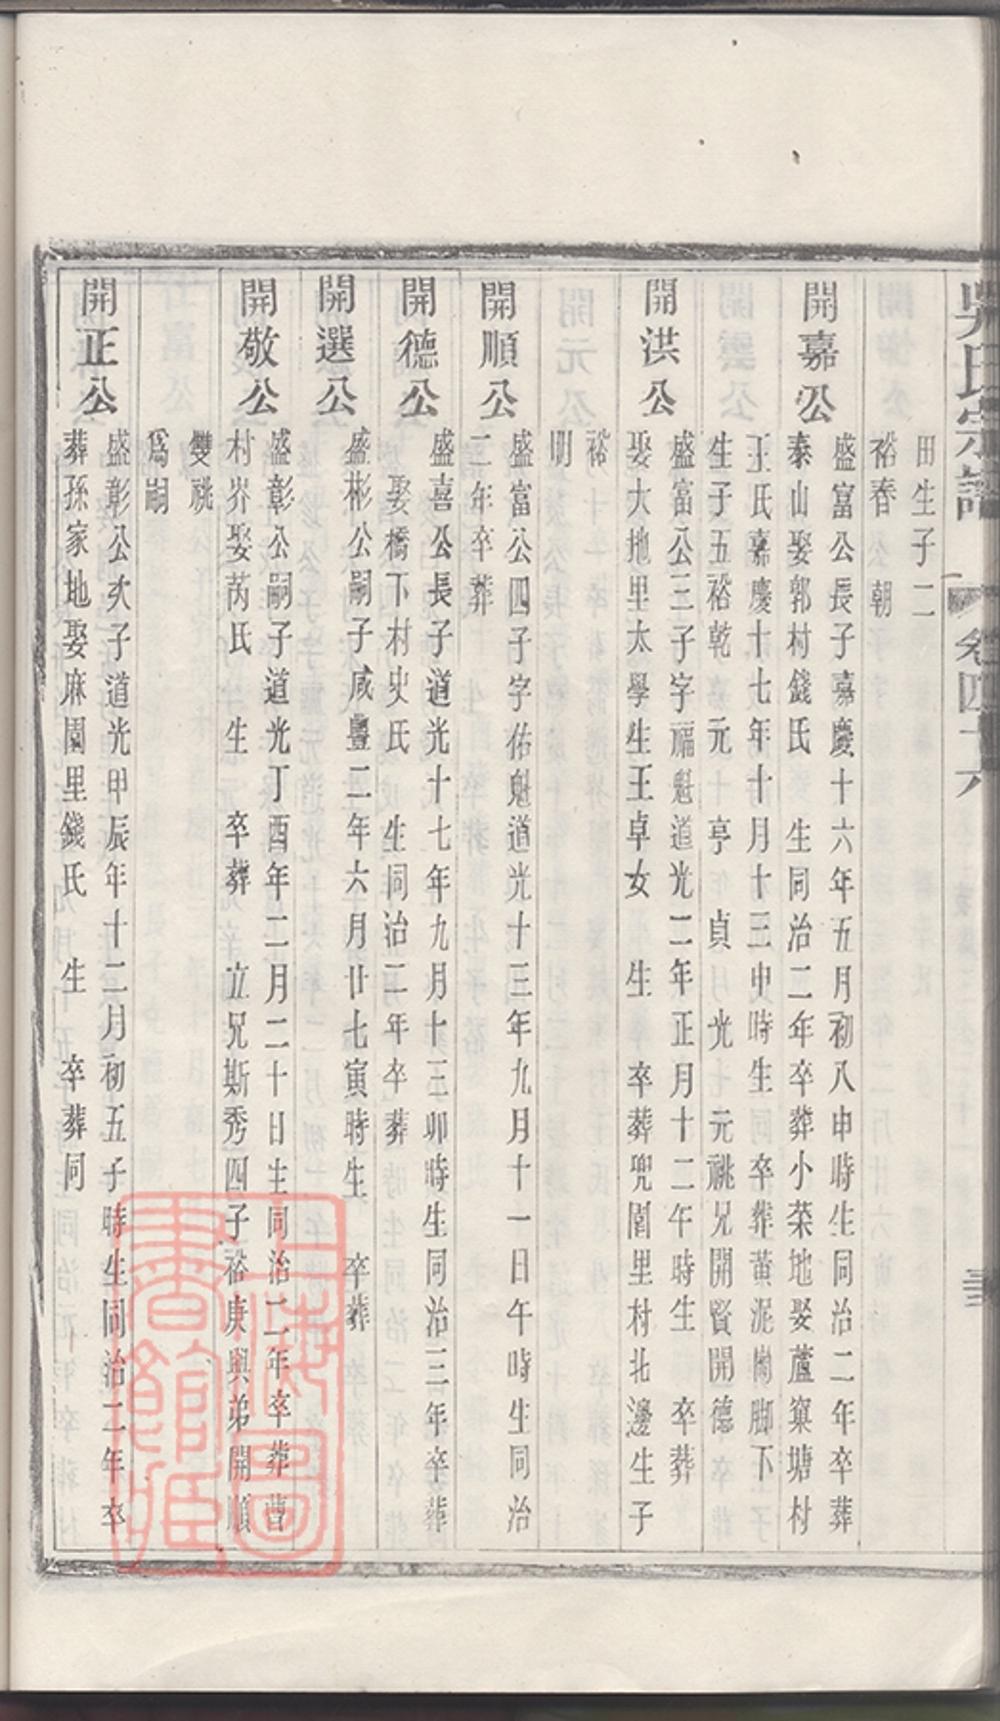 吳氏宗譜 卷四十六
田生子二
裕春 朝
開嘉公
盛富公長子嘉慶十六年五月初八申時生同治二年卒葬
泰山娶郭村錢氏 生同治二年卒葬小棻地娶蘆窠塘村
王氏嘉慶十七年十月十三申時生 卒葬黃泥崗脚下
生子五裕乾 元 亨 貞 光 元祧兄開賢開德
開洪公
盛富公三子字福魁道光二年正月十二午時生 卒葬
娶大地里太學生王卓女 生 卒葬兜闈里村北邊生子
裕
明
開順公
盛富公四子字佑魁道光十三年九月十一日午時生同治
二年卒葬
開德公
盛喜公長子道光十七年九月十三卯時生同治三年卒葬
娶橋下村史氏 生同治二年卒葬
開選公
盛彬公嗣子咸豐二年六月廿七寅時生 卒葬
開敬公
盛彰公嗣子道光丁酉年二月二十日生同治二年卒葬曹
村岕娶芮氏 生 卒葬 立兄斯秀四子裕庚與弟開順
雙祧
爲嗣
開正公
盛彰公次子道光甲辰年十二月初五子時生同治二年卒
葬孫家地娶麻園里錢氏 生 卒葬同
上海圖書館藏